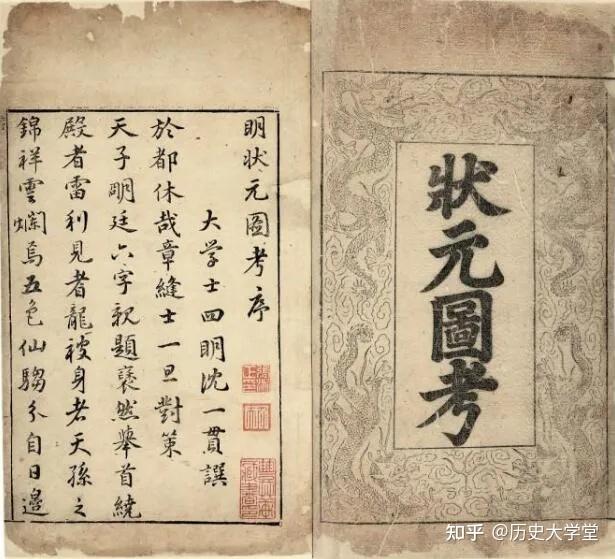 狀元圖考
明狀元圖考序
大学士四明沈一貫譔
於都休哉章縫士一旦對策
天子朙廷六字親題褎然舉首繞
殿者雷利見者龍被身者天孫之
錦祥雲爛焉五色仙騶分自日邊
知乎 @历史大学堂